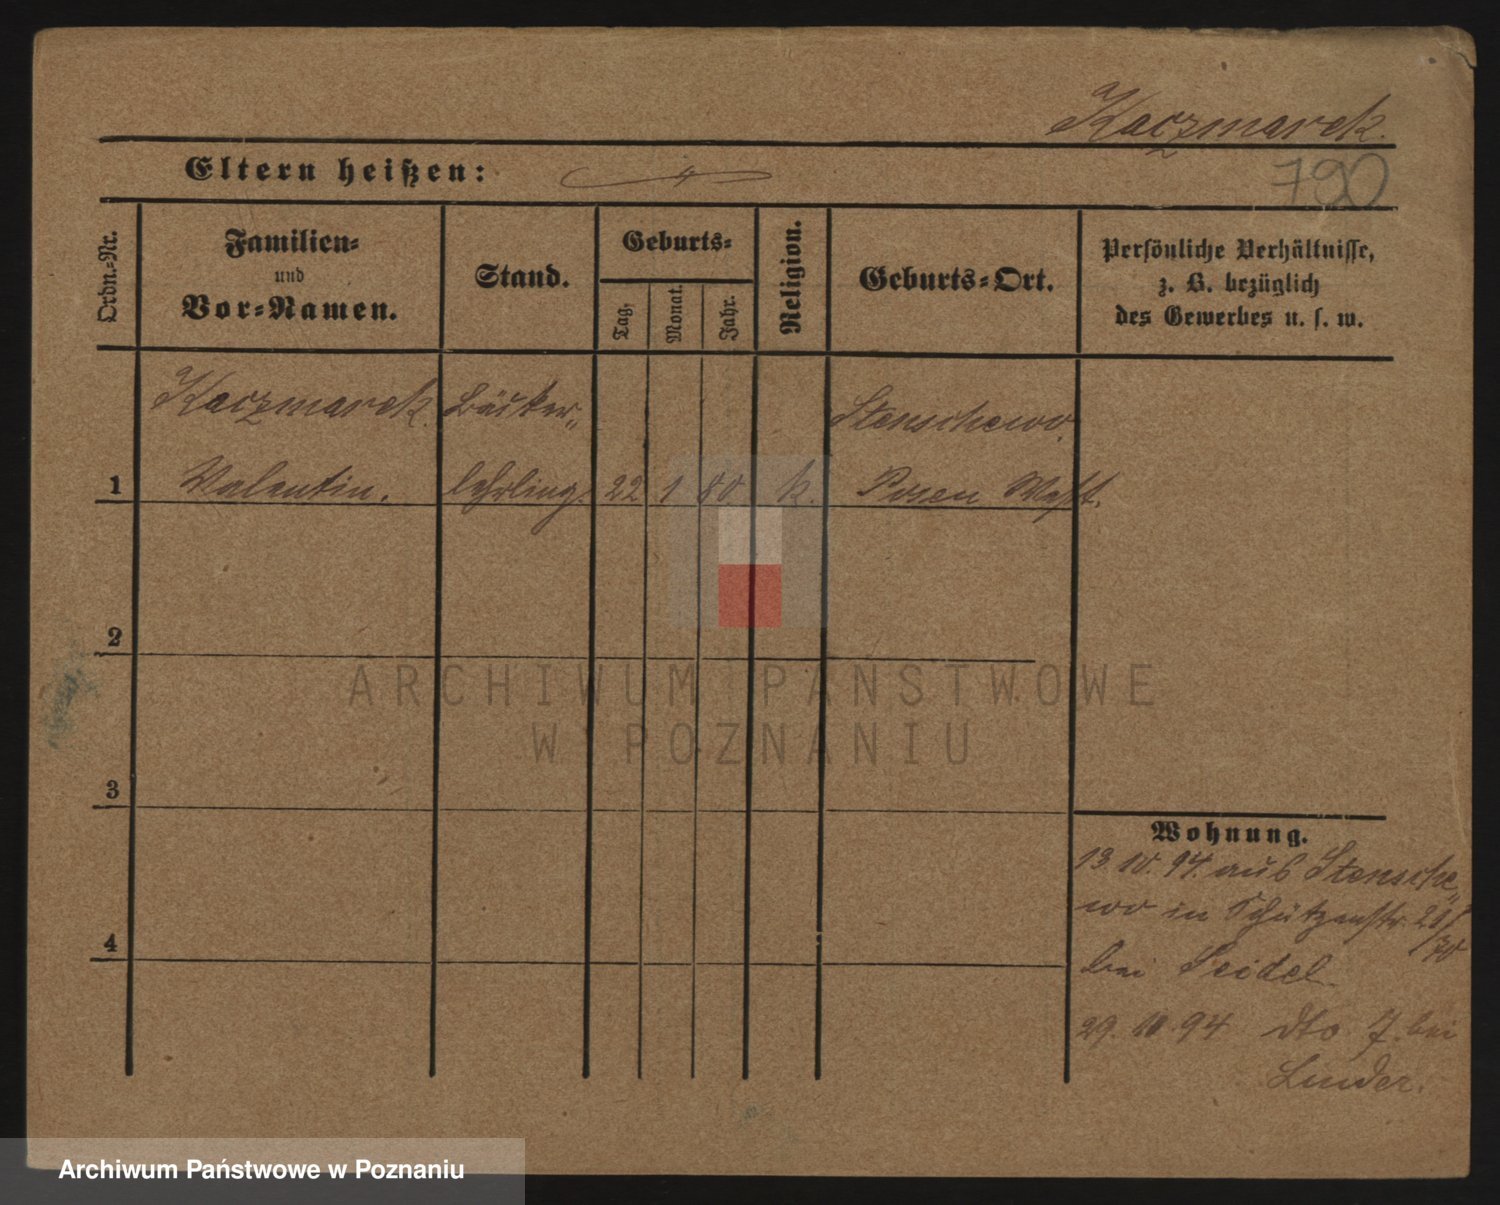 Kaczmarek.
790
Eltern heißen:
Ordn.-Nr.
Familien-
und
Vor-Namen.
Stand.
Geburts-
Tag.
Monat.
Jahr.
Religion.
Geburts-Ort.
Persönliche Verhältnisse,
z. B. bezüglich
des Gewerbes u. s. w.
Kaczmarek. Bäcker„ Stenschewo.
1 Valentin. lehrling. 22 1 80 k. Posen West.
2
3
4
Wohnung.
13.10.94. aus Stensche„
wo in Schützenstr. 20/
bei Seidel.
29.10.94 dto 7. bei
Linder.
ARCHIWUM PAŃSTWOWE
W POZNANIU
Archiwum Państwowe w Poznaniu